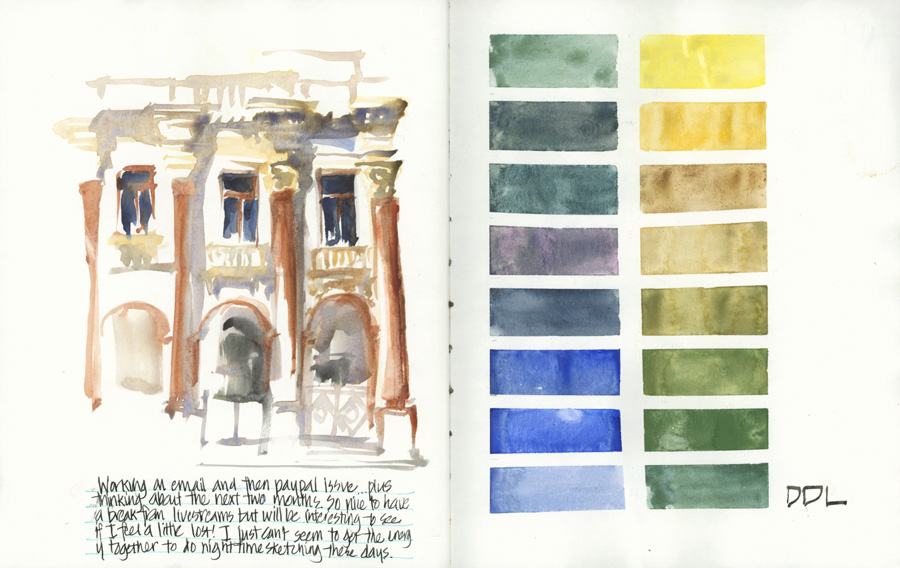 Working on email and then paypal issue...plus
thinking about the next two months. So nice to have
a break from livestreams but will be interesting to see
if I feel a little lost! I just can't seem to get the energ
y together to do night time sketching these days.
DDL